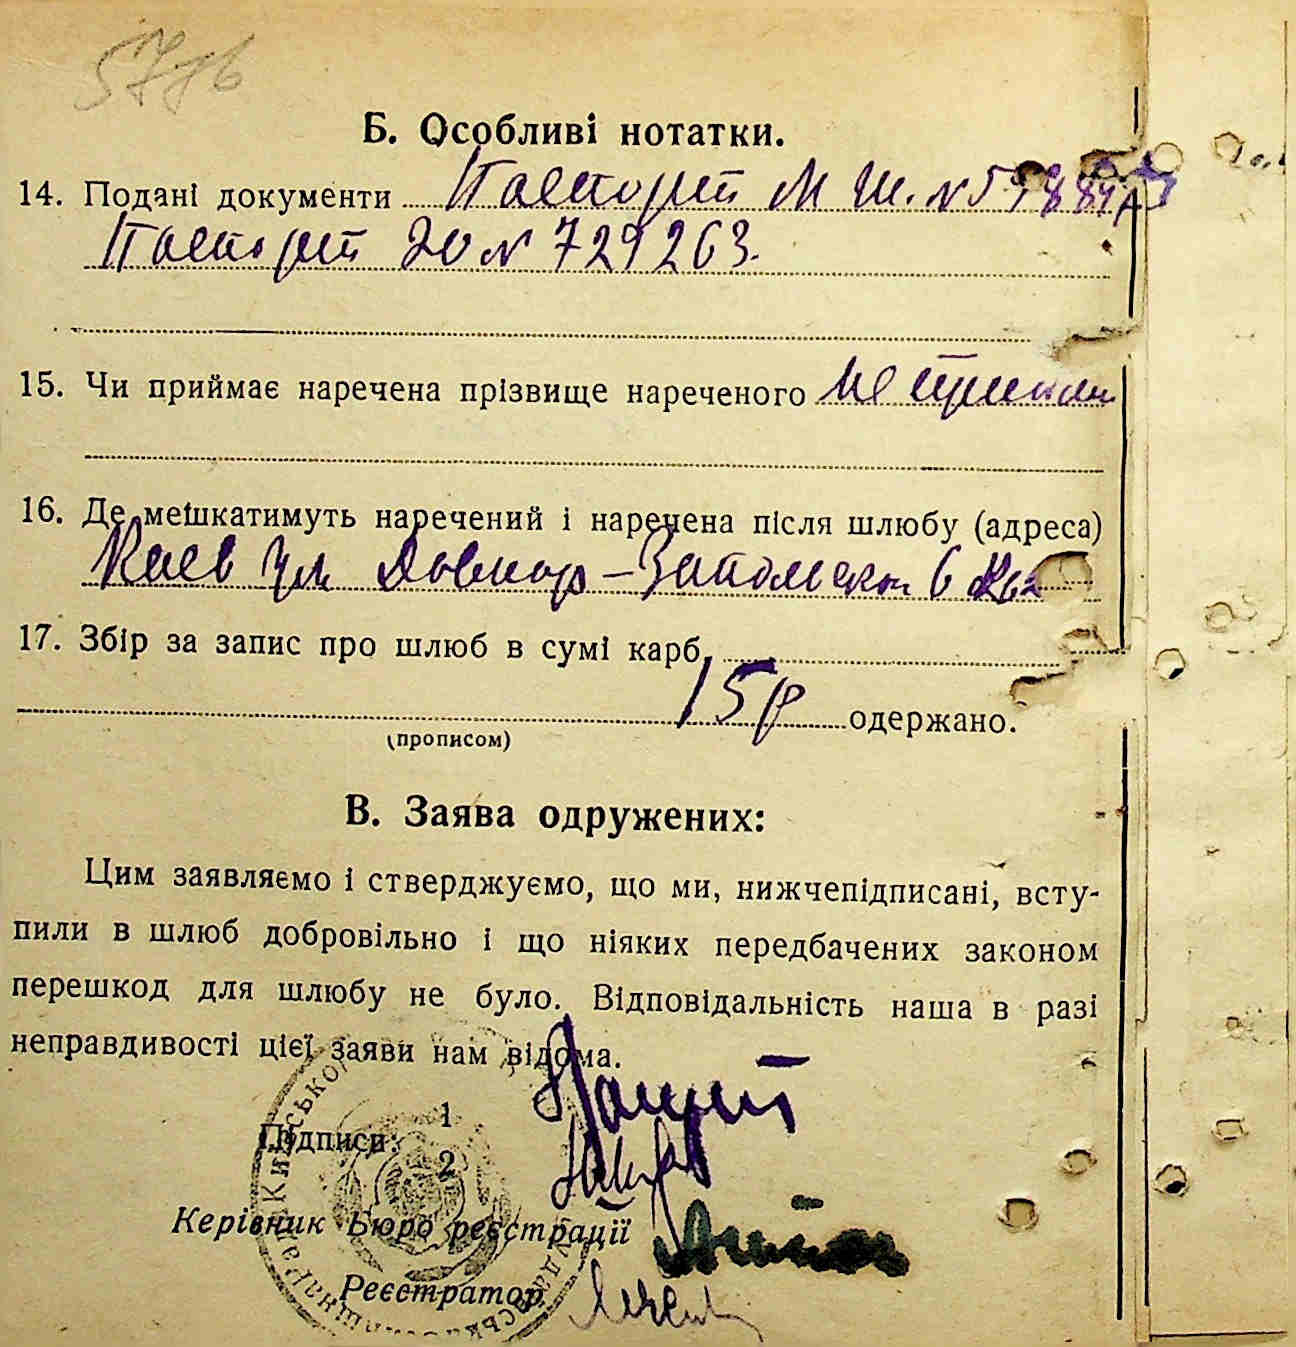 5776
Б. Особливі нотатки.
14. Подані документи Паспорт М Ш. №
Паспорт ЭЮ № 729263.
15. Чи приймає наречена прізвище нареченого не приним
16. Де мешкатимуть наречений і наречена після шлюбу (адреса)
Киев ул Довнар-Запольск 6 кв
17. Збір за запис про шлюб в сумі карб.
15р одержано.
(прописом)
В. Заява одружених:
Цим заявляємо і стверджуємо, що ми, нижчепідписані, всту-
пили в шлюб добровільно і що ніяких передбачених законом
перешкод для шлюбу не було. Відповідальність наша в разі
неправдивості цієї заяви нам відома.
Підписи: 1
2
Керівник Бюро реєстрації
Реєстратор